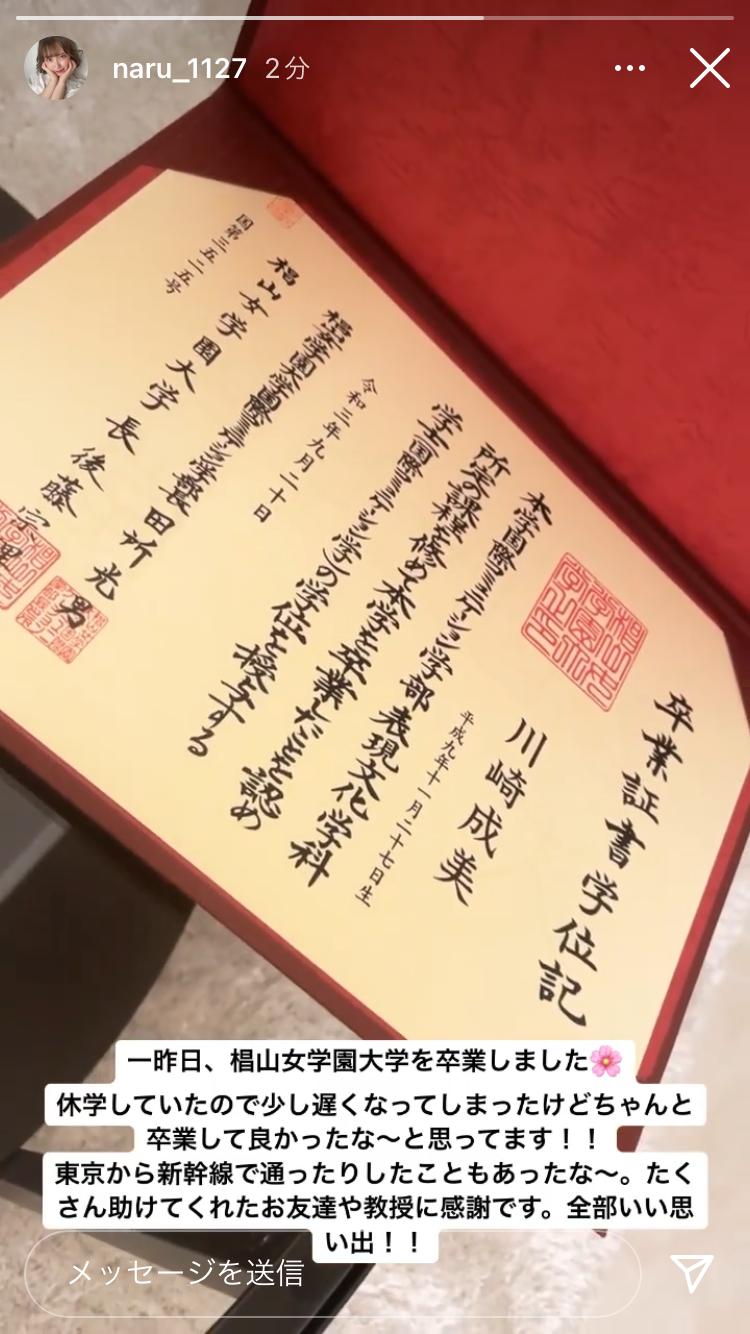 naru_1127 2分
卒業証書学位記
川崎成美
平成九年十一月二十七日生
本学国際コミュニケーション学部表現文化学科
所定の課程を修めて本学を卒業したことを認め
学士(国際コミュニケーション学)の学位を授与する
令和三年九月二十日
椙山女学園大学国際コミュニケーション学部長 田所光男
椙山女学園大学長 後藤宗理
国第三五二五号
一昨日、椙山女学園大学を卒業しました🌸
休学していたので少し遅くなってしまったけどちゃんと
卒業して良かったな〜と思ってます！！
東京から新幹線で通ったりしたこともあったな〜。たく
さん助けてくれたお友達や教授に感謝です。全部いい思
い出！！
メッセージを送信